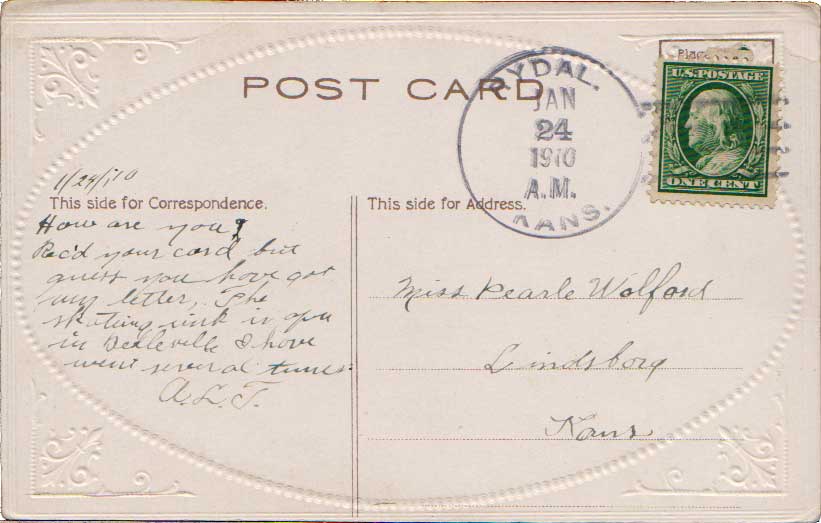 Place
U.S. POSTAGE
ONE CENT
POST CARD
RYDAL.
JAN
24
1910
A.M.
KANS.
1/24/10
This side for Correspondence.
How are you?
Rec'd your card but
guess you have got
my letter, The
skating rink is open
in Belleville I have
went several times.
A.L.T.
This side for Address.
Miss Pearle Wolford
Lindsborg
Kans